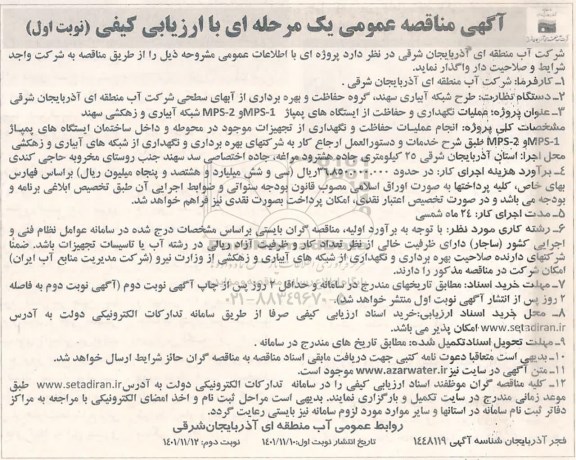 آگهی مناقصه عمومی یک مرحله ای با ارزیابی کیفی (نوبت اول)
شرکت آب منطقه ای آذربایجان شرقی در نظر دارد پروژه ای با اطلاعات عمومی مشروحه ذیل را از طریق مناقصه به شرکت واجد
شرایط و صلاحیت دار واگذار نماید.
۱ـ کارفرما: شرکت آب منطقه ای آذربایجان شرقی .
۲ـ دستگاه نظارت: طرح شبکه آبیاری سهند، گروه حفاظت و بهره برداری از آبهای سطحی شرکت آب منطقه ای آذربایجان شرقی
۳ـ عنوان پروژه: عملیات نگهداری و حفاظت از ایستگاه های پمپاژ MPS-1و MPS-2 شبکه آبیاری و زهکشی سهند
مشخصات کلی پروژه: انجام عملیات حفاظت و نگهداری از تجهیزات موجود در محوطه و داخل ساختمان ایستگاه های پمپاژ
MPS-1و MPS-2 طبق شرح خدمات و دستورالعمل ارجاع کار به شرکتهای بهره برداری و نگهداری از شبکه های آبیاری و زهکشی
محل اجرا: استان آذربایجان شرقی ۲۵ کیلومتری جاده هشترود مراغه، جاده اختصاصی سد سهند جنب روستای مخروبه حاجی کندی
۴ـ برآورد هزینه اجرای کار: در حدود ۳۶،۸۵۰،۰۰۰،۰۰۰ریال (سی و شش میلیارد و هشتصد و پنجاه میلیون ریال) براساس فهارس
بهای خاص، کلیه پرداختها به صورت اوراق اسلامی مصوب قانون بودجه سنواتی و ضوابط اجرایی آن طبق تخصیص ابلاغی برنامه و
بودجه می باشد و در صورت تخصیص اعتبار نقدی، امکان پرداخت بصورت نقدی نیز فراهم خواهد شد.
۵ـ مدت اجرای کار: ۲۴ ماه شمسی
۶ـ رشته کاری مورد نظر: با توجه به برآورد اولیه، مناقصه گران بایستی براساس مشخصات درج شده در سامانه عوامل نظام فنی و
اجرایی کشور (ساجار) دارای ظرفیت خالی از نظر تعداد کار و ظرفیت آزاد ریالی در رشته آب یا تاسیسات تجهیزات باشد. ضمنا
شرکتهای دارنده صلاحیت بهره برداری و نگهداری از شبکه های آبیاری و زهکشی از وزارت نیرو (شرکت مدیریت منابع آب ایران)
امکان شرکت در مناقصه مذکور را دارند.
۷ـ مهلت خرید اسناد: مطابق تاریخهای مندرج در سامانه و حداقل ۲ روز پس از چاپ آگهی نوبت دوم (آگهی نوبت دوم به فاصله
۲ روز پس از انتشار آگهی نوبت اول منتشر خواهد شد). ۰۲۱-۸۸۳۴۹۶۷۰
۸ـ محل خرید اسناد ارزیابی:خرید اسناد ارزیابی کیفی صرفا از طریق سامانه تدارکات الکترونیکی دولت به آدرس
www.setadiran.ir امکان پذیر می باشد.
۹ـ مهلت تحویل اسنادتکمیل شده: مطابق تاریخ های مندرج در سامانه .
۱۰ـ بدیهی است متعاقبا دعوت نامه کتبی جهت دریافت مابقی اسناد مناقصه به مناقصه گران حائز شرایط ارسال خواهد شد.
۱۱ـ متن آگهی در سایت نیز www.azarwater.ir موجود است.
۱۲ـ کلیه مناقصه گران موظفند اسناد ارزیابی کیفی را در سامانه تدارکات الکترونیکی دولت به آدرس www.setadiran.ir طبق
موعد زمانی مندرج در سایت تکمیل و بارگزاری نمایند. بدیهی است مراحل ثبت نام و اخذ امضای الکترونیکی با مراجعه به مراکز
دفاتر ثبت نام سامانه در استانها و سایر موارد مورد لزوم سامانه نیز بایستی رعایت گردد.
روابط عمومی آب منطقه ای آذربایجان‌شرقی
فجر آذربایجان شناسه آگهی ۱۴۴۸۱۱۹ تاریخ انتشار نوبت اول: ۱۴۰۱/۱۱/۱۰ نوبت دوم: ۱۴۰۱/۱۱/۱۲